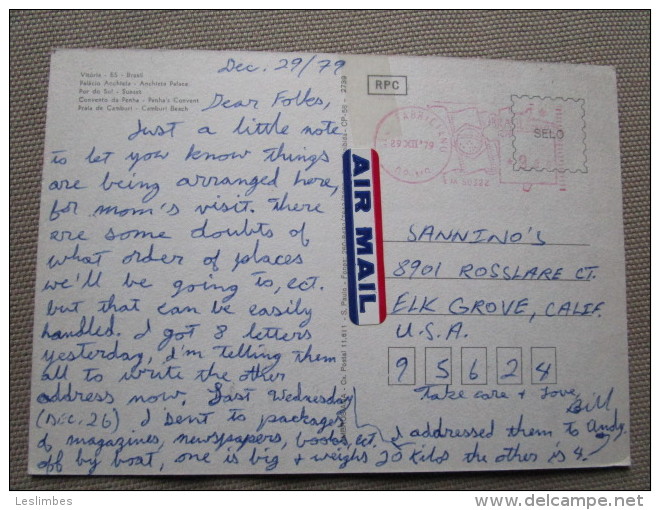 Vitória - ES - Brasil
Palácio Anchieta - Anchieta Palace
Por do Sol - Sunset
Convento da Penha - Penha's Convent
Praia de Camburi - Camburi Beach
Dec. 29/79
Dear Folks,
Just a little note
to let you know things
are being arranged here,
for mom's visit. There
are some doubts of
what order of places
we'll be going to, ect.
but that can be easily
handled. I got 8 letters
yesterday, I'm telling them
all to write the other
address now. Last Wednesday
(DEC. 26) I sent to packages
of magazines, newspapers, books, ect. I addressed them to Andy.
off by boat, one is big + weighs 20 kilos the other is 4.
RPC
SELO
AIR MAIL
SANNINO'S
8901 ROSSLARE CT.
ELK GROVE, CALIF.
U.S.A.
9 5 6 2 4
Take care + Love,
Bill
Leslimbes
delcampe.net